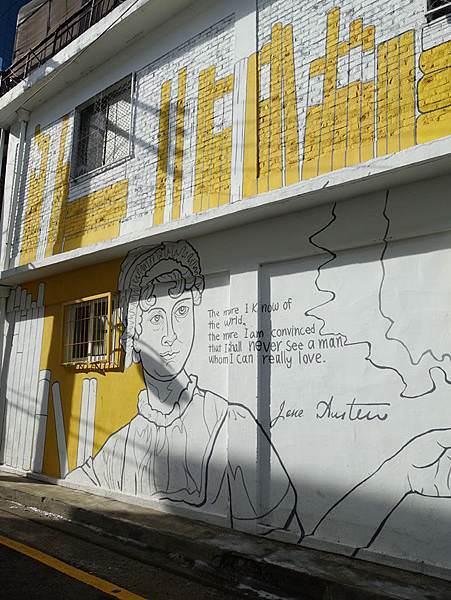 The more I Know of
the world,
the more I am convinced
that I shall never see a man
whom I can really love.
Jane Austen